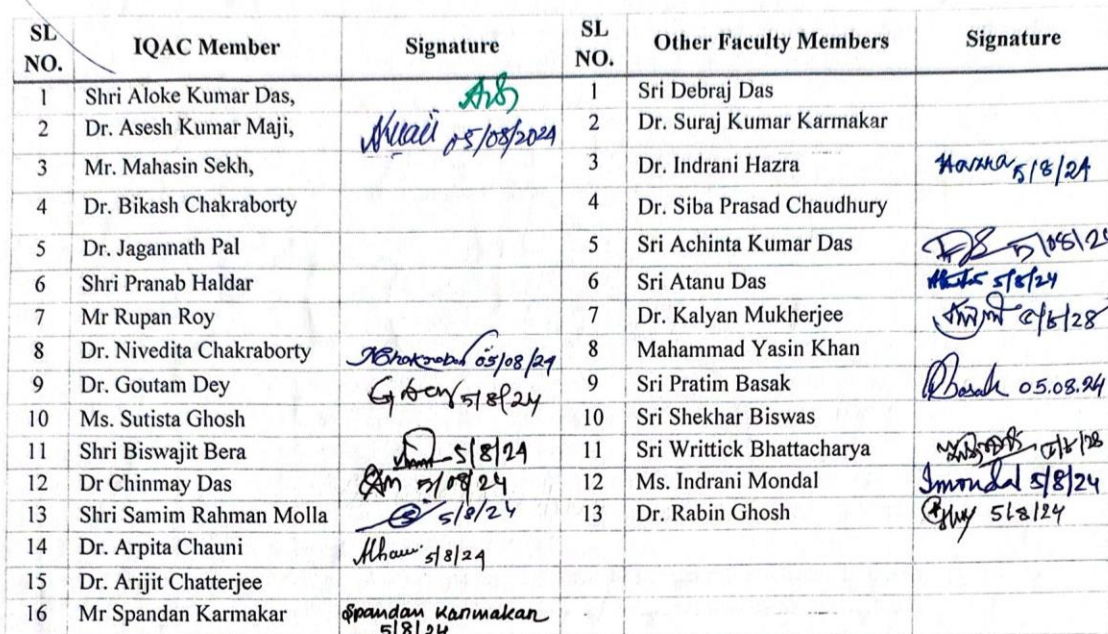 SL NO. IQAC Member Signature SL NO. Other Faculty Members Signature
1 Shri Aloke Kumar Das, 1 Sri Debraj Das
2 Dr. Asesh Kumar Maji, 05/08/2024 2 Dr. Suraj Kumar Karmakar
3 Mr. Mahasin Sekh, 3 Dr. Indrani Hazra Hazra 5/8/24
4 Dr. Bikash Chakraborty 4 Dr. Siba Prasad Chaudhury
5 Dr. Jagannath Pal 5 Sri Achinta Kumar Das
6 Shri Pranab Haldar 6 Sri Atanu Das 5/8/24
7 Mr Rupan Roy 7 Dr. Kalyan Mukherjee
8 Dr. Nivedita Chakraborty 05/08/24 8 Mahammad Yasin Khan
9 Dr. Goutam Dey G Dey 5/8/24 9 Sri Pratim Basak PBasak 05.08.24
10 Ms. Sutista Ghosh 10 Sri Shekhar Biswas
11 Shri Biswajit Bera 5/8/24 11 Sri Writtick Bhattacharya
12 Dr Chinmay Das 5/08/24 12 Ms. Indrani Mondal Imondal 5/8/24
13 Shri Samim Rahman Molla 5/8/24 13 Dr. Rabin Ghosh 5/8/24
14 Dr. Arpita Chauni 5/8/24
15 Dr. Arijit Chatterjee
16 Mr Spandan Karmakar Spandan Karmakar
5/8/24